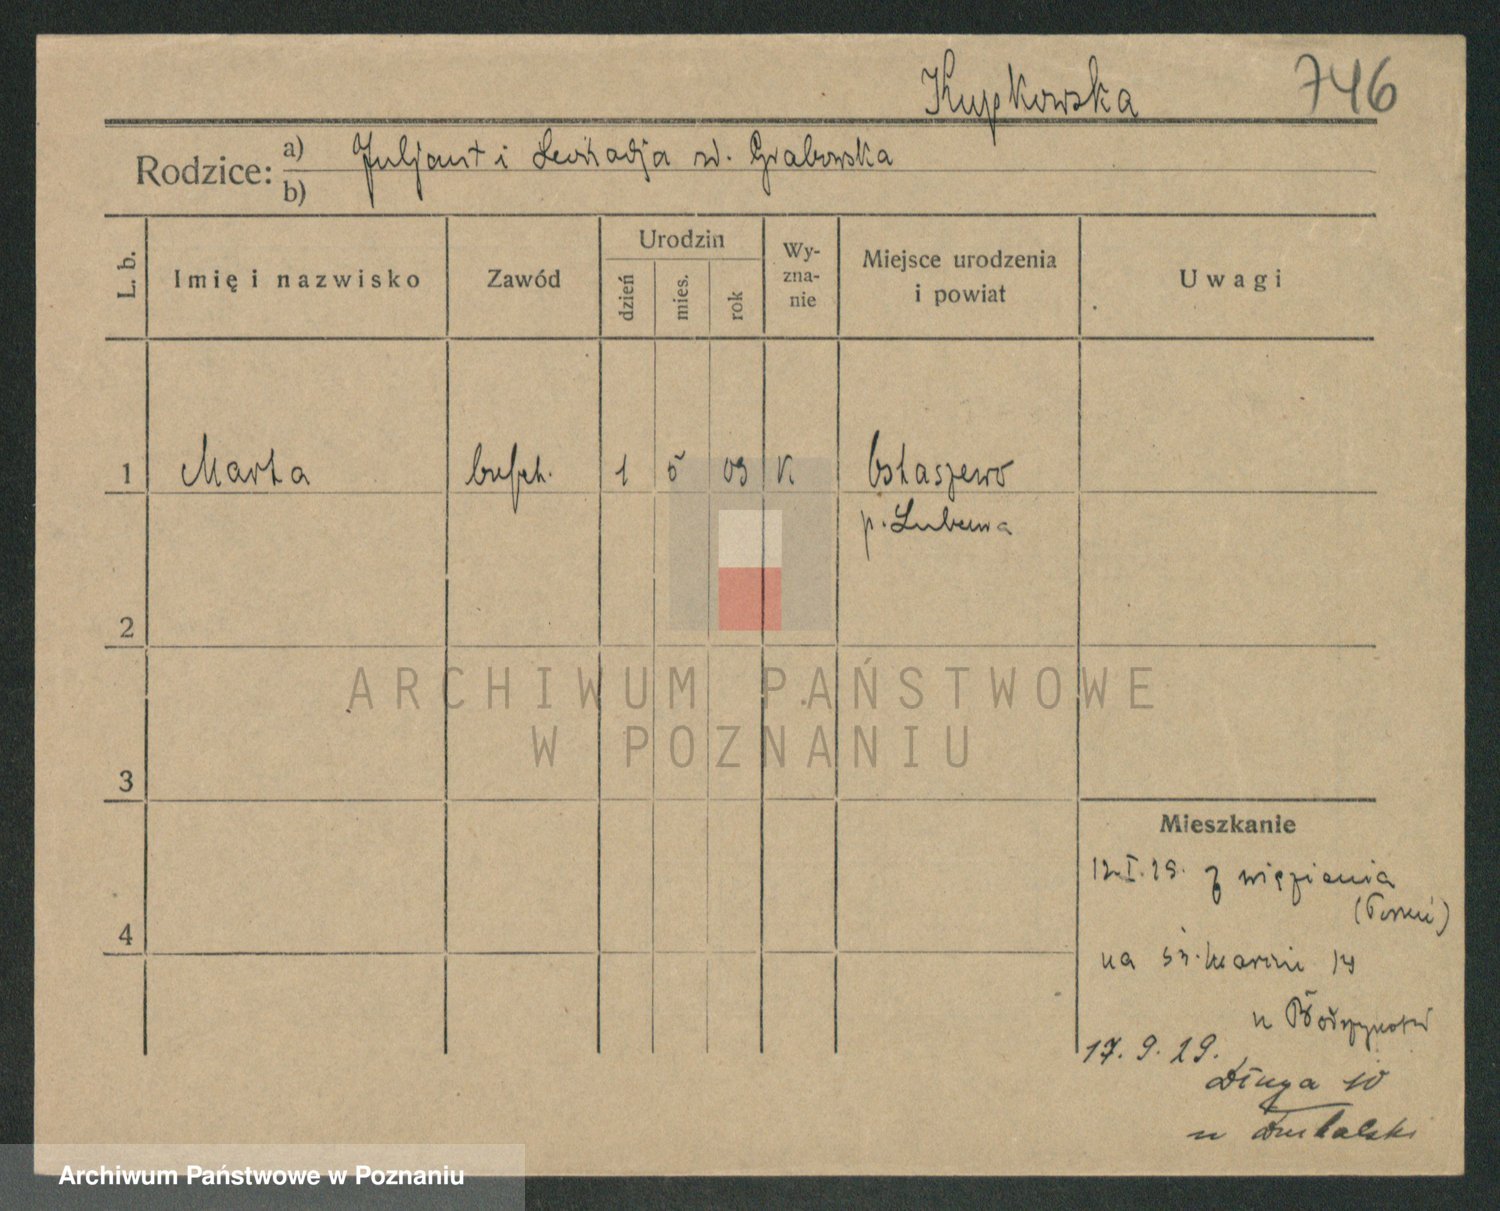 Kupkowska 746
Rodzice: a) Juljant i Leokadja z d. Grabowska
b)
L. b. Imię i nazwisko Zawód Urodzin dzień mies. rok Wy-zna-nie Miejsce urodzenia i powiat Uwagi
1 Marta bufet. 1 5 09 K Ostaszewo
p. Lubawa
2
3
4
Mieszkanie
12.I.29. z więzienia
(Toruń)
na św. Marcin 14
u
17. 9. 29.
Długa 10
u
ARCHIWUM PAŃSTWOWE
W POZNANIU
Archiwum Państwowe w Poznaniu